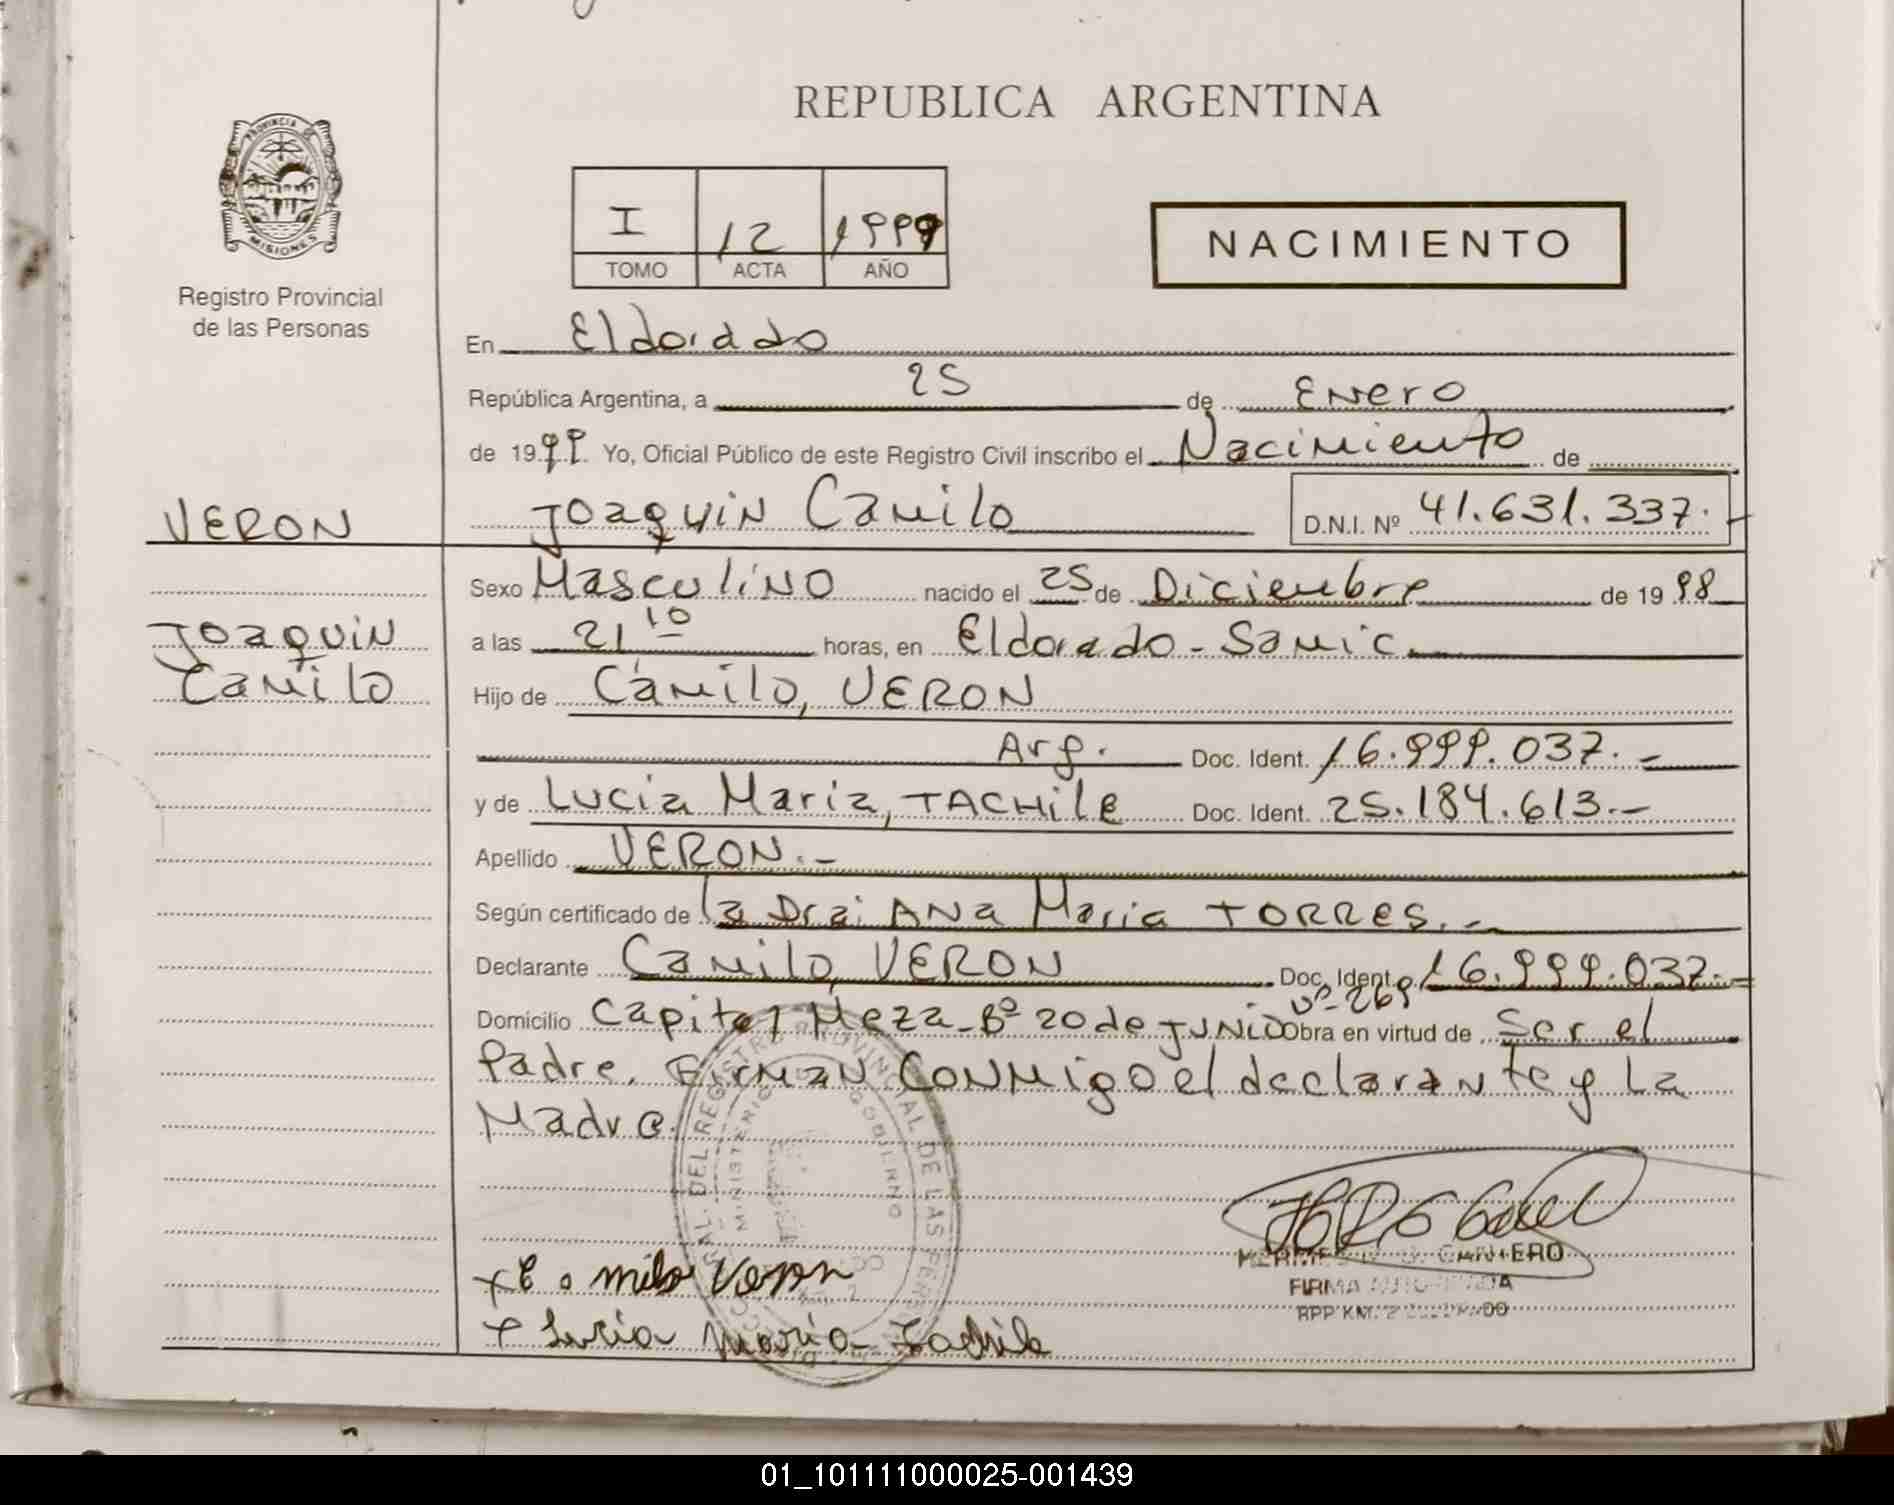 REPUBLICA ARGENTINA
PROVINCIA DE
MISIONES
Registro Provincial
de las Personas
I 12 1999
TOMO ACTA AÑO
NACIMIENTO
En Eldorado
República Argentina, a 25 de Enero
de 1999. Yo, Oficial Público de este Registro Civil inscribo el Nacimiento de
VERON
Joaquin Camilo D.N.I. Nº 41.631.337.-
Sexo Masculino nacido el 25 de Diciembre de 1998
Joaquin
Camilo
a las 21 10 horas, en Eldorado - Samic.
Hijo de Camilo, VERON
Arg. Doc. Ident. 16.999.037.-
y de Lucia Maria, TACHILE Doc. Ident. 25.184.613.-
Apellido VERON.-
Según certificado de la Dra: ANA Maria TORRES.-
Declarante Camilo, VERON Doc. Ident. 16.999.037.-
Domicilio Capital Meza - Bº 20 de JUNIO Nº 269 Obra en virtud de Ser el
Padre. Firman CONMigo el declarante y La
Madre.
REGISTRO PROVINCIAL DE LAS PERS
MINISTERIO GOBIERNO
Camilo Veron
Lucia Maria Tachile
CANTERO
FIRMA
RPP KM. 2
01_101111000025-001439